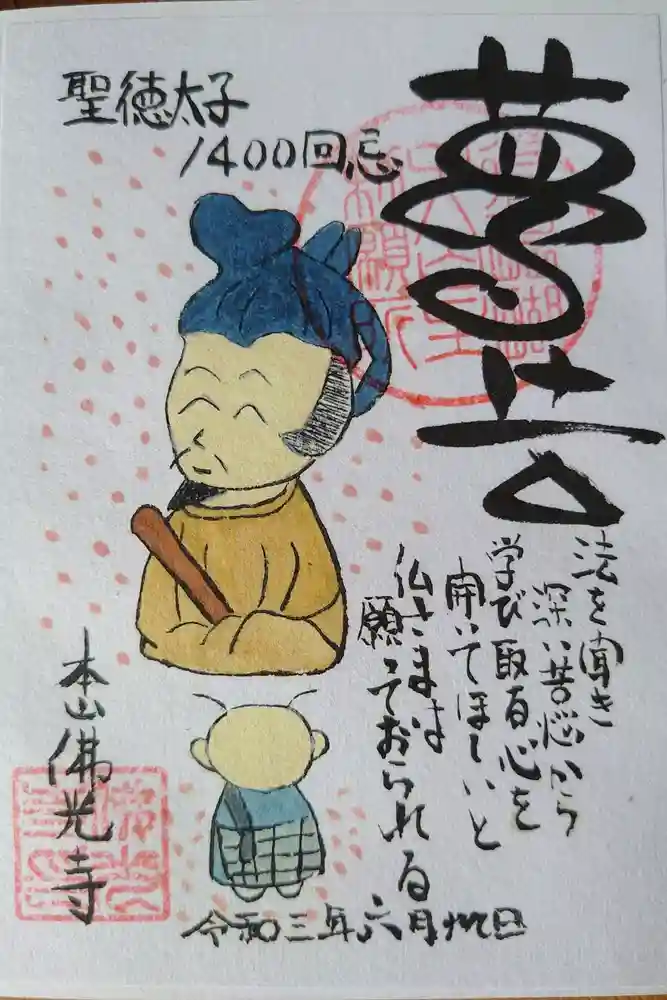 夢告
聖徳太子
1400回忌
法を聞き
深い苦悩から
学び取る心を
開いてほしいと
仏さまは
願っておられる
本山佛光寺
令和三年六月 日